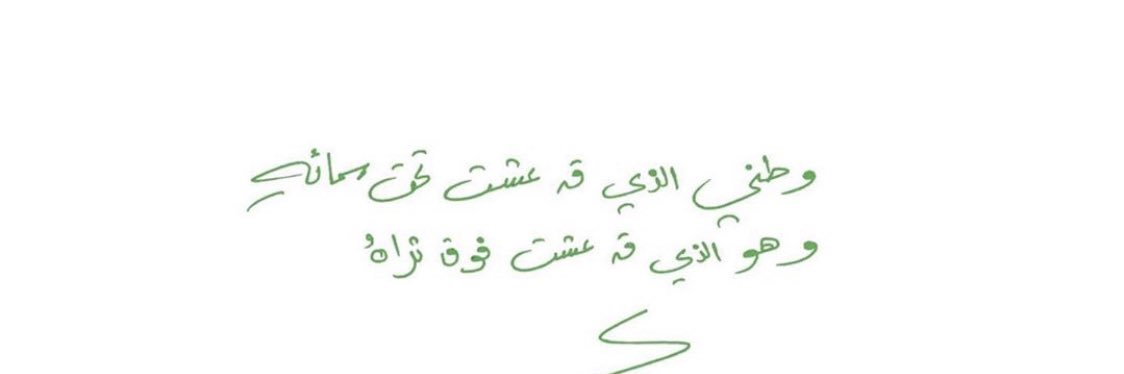 وطني الذي قد عشت تحت سمائهِ
وهو الذي قد عشت فوق ثراهُ